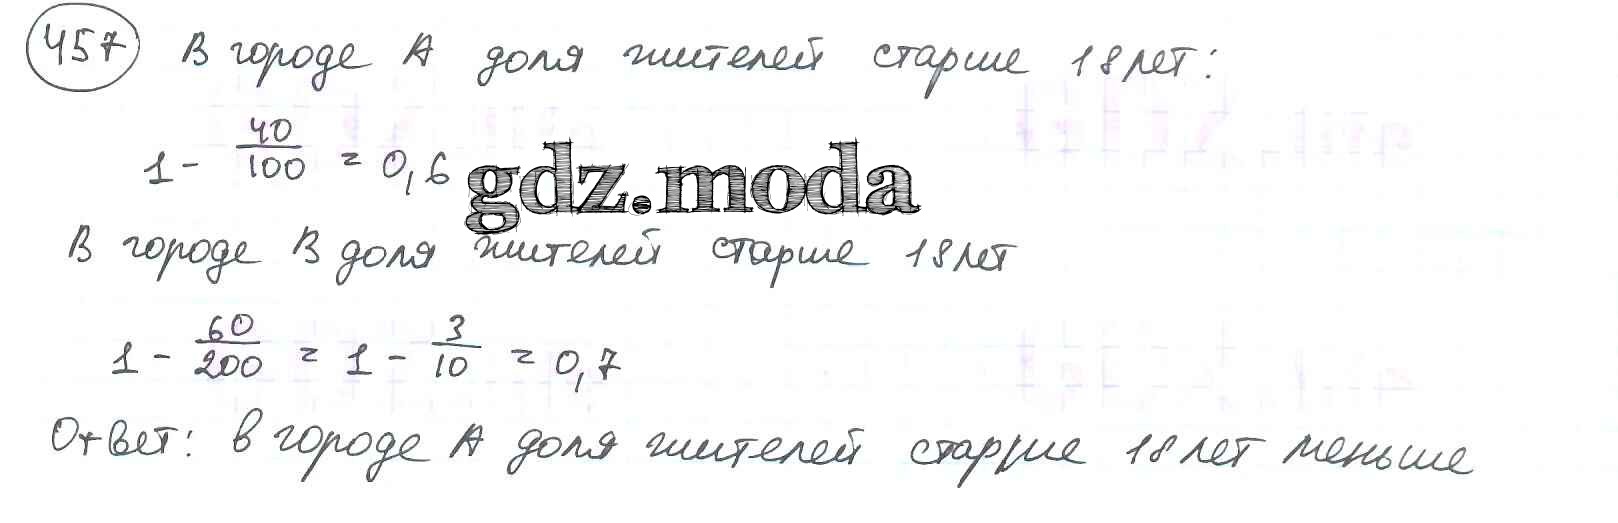 457 В городе А доля жителей старше 18 лет:
1 - 40/100 = 0,6
gdz.moda
В городе В доля жителей старше 18 лет
1 - 60/200 = 1 - 3/10 = 0,7
Ответ: в городе А доля жителей старше 18 лет меньше